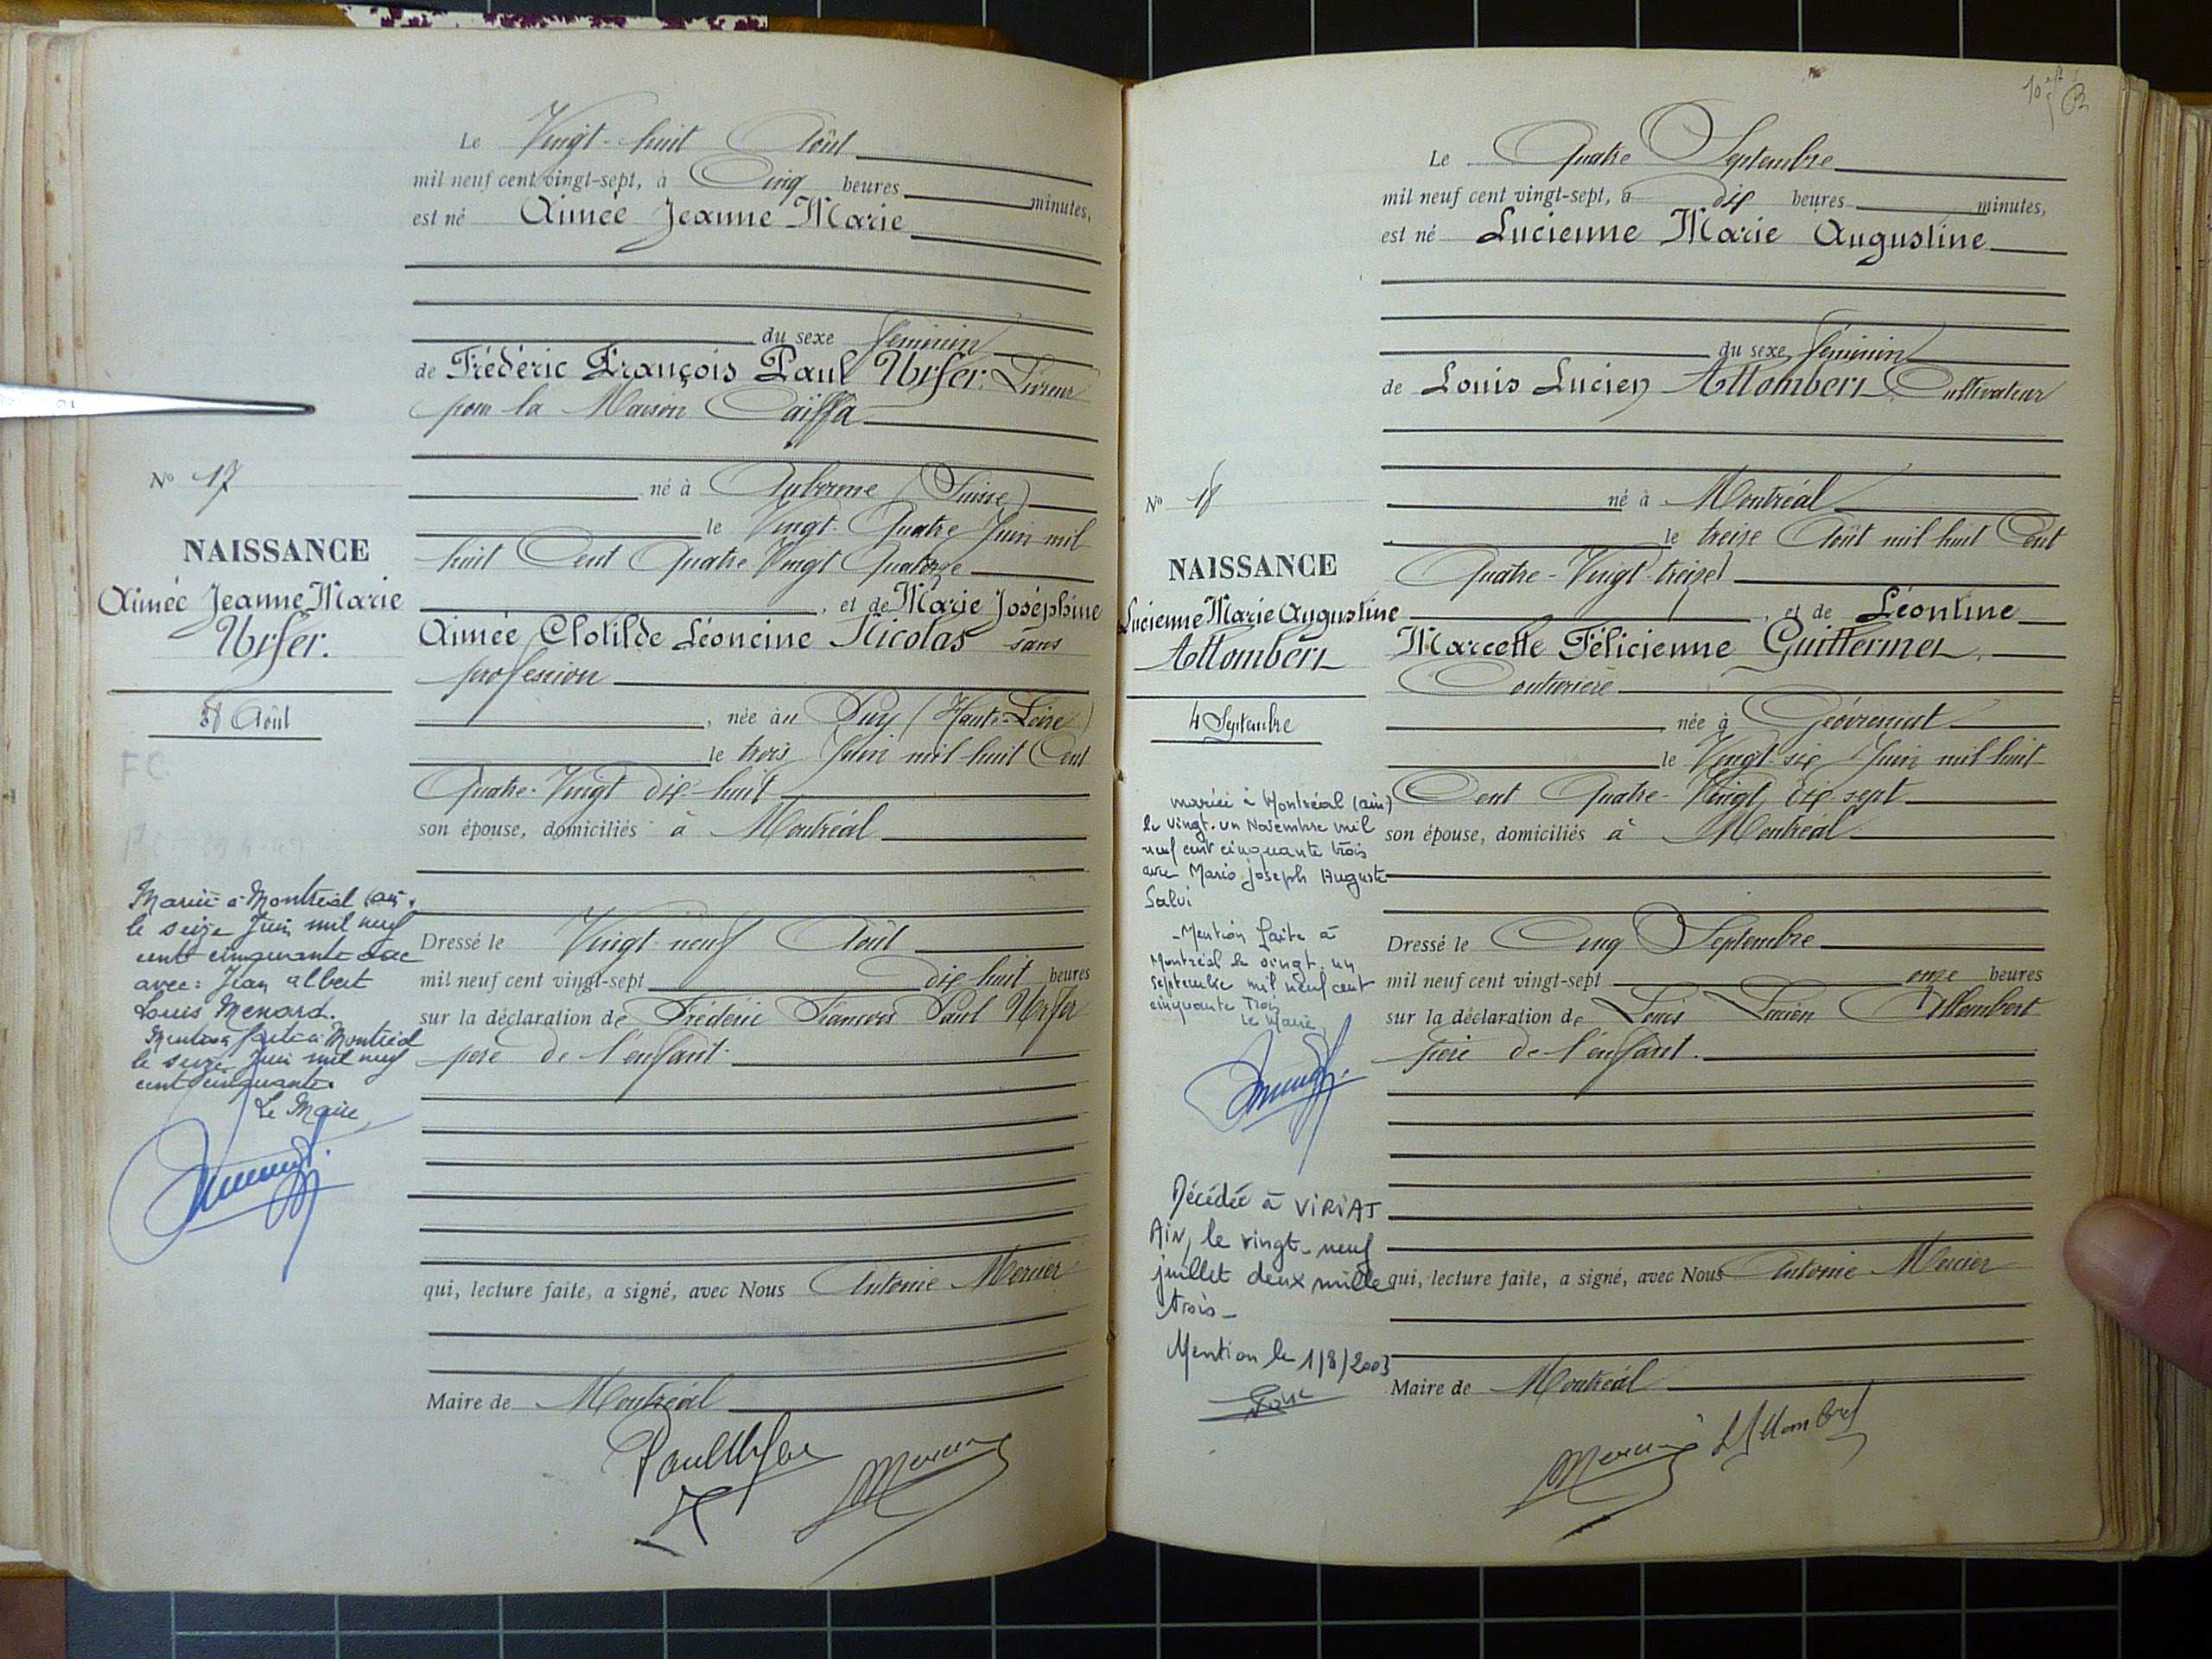 Le Vingt-huit Août
mil neuf cent vingt-sept, à Cinq heures minutes,
est né Aimée Jeanne Marie
du sexe féminin
de Frédéric François Paul Urfer. Livreur
pour la Maison Caïffa
N° 17
né à Aubonne (Suisse)
le Vingt-Quatre Juin mil
huit Cent Quatre Vingt Quatorze
NAISSANCE
Aimée Jeanne Marie
Urfer.
28 Août
FC
, et de Marie Joséphine
Aimée Clotilde Léoncine Nicolas sans
profession
, née au Puy (Haute-Loire)
le trois Juin mil huit Cent
Quatre-Vingt dix-huit
son épouse, domiciliés à Montréal
Mariée à Montréal
le seize Juin mil neuf
cent cinquante
avec: Jean Albert
Louis Menard.
Mention faite à Montréal
le seize Juin mil neuf
cent cinquante.
Le Maire
Dressé le Vingt-neuf Août
mil neuf cent vingt-sept dix huit heures
sur la déclaration de Frédéric François Paul Urfer
père de l'enfant.
qui, lecture faite, a signé, avec Nous Antonie Mercier
Maire de Montréal
Paul Urfer Mercier
Le Quatre Septembre
mil neuf cent vingt-sept, à dix heures minutes,
est né Lucienne Marie Augustine
du sexe féminin
de Louis Lucien Allombert Cultivateur
N° 18
né à Montréal
le treize Août mil huit Cent
Quatre-Vingt-treize
NAISSANCE
Lucienne Marie Augustine
Allombert
4 Septembre
, et de Léontine
Marcelle Félicienne Guillermet,
Couturière
née à Géovreissiat
le Vingt-six Juin mil huit
Cent Quatre-Vingt, dix-sept
son épouse, domiciliés à Montréal
mariée à Montréal (ain)
le vingt-un Novembre mil
neuf cent cinquante trois
avec Mario Joseph Auguste
Salvi
-Mention faite à
Montréal le vingt-un
septembre mil neuf cent
cinquante Trois
Le Maire,
Dressé le Cinq Septembre
mil neuf cent vingt-sept onze heures
sur la déclaration de Louis Lucien Allombert
père de l'enfant.
Décédée à VIRIAT
AIN, le vingt-neuf
juillet deux mille
trois-
Mention le 1/8/2003
qui, lecture faite, a signé, avec Nous Antonie Mercier
Maire de Montréal
Mercier L Allombert